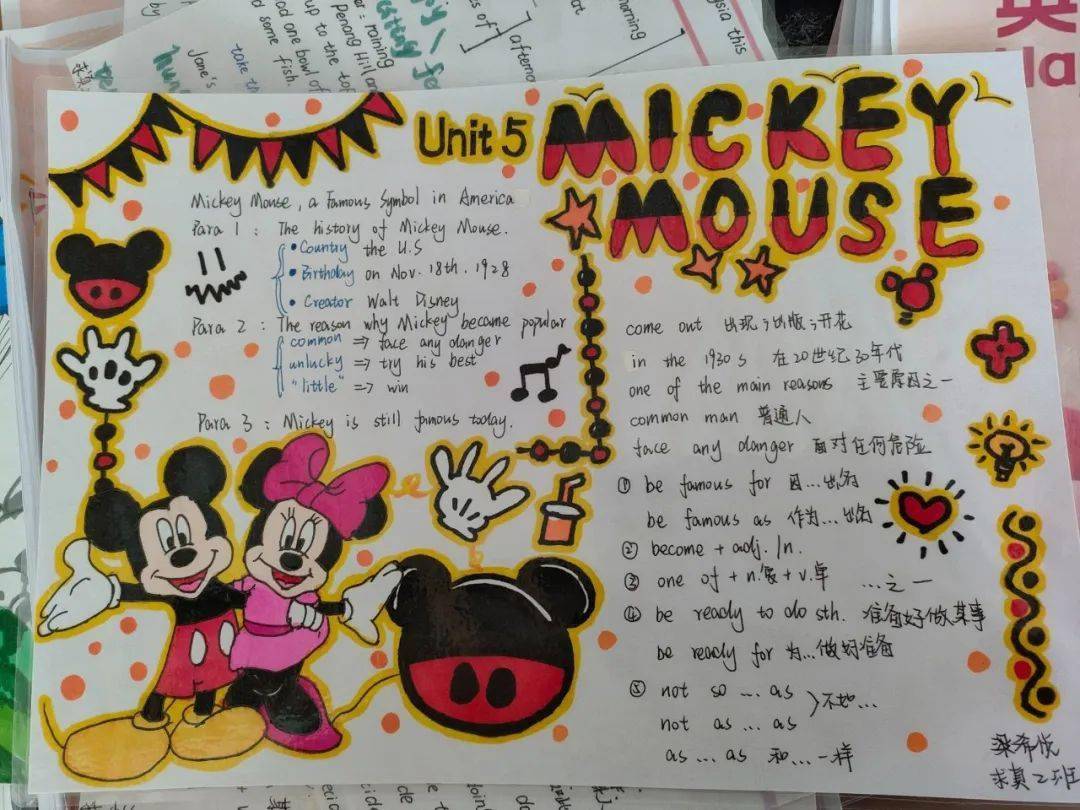 Unit 5
MICKEY
MOUSE
Mickey Mouse, a famous symbol in America
Para 1 : The history of Mickey Mouse.
• Country the U.S
• Birthday on Nov. 18th. 1928
• Creator Walt Disney
Para 2 : The reason why Mickey became popular
common => face any danger
unlucky => try his best
"little" => win
Para 3 : Mickey is still famous today.
come out 出现;出版;开花
in the 1930s 在20世纪30年代
one of the main reasons 主要原因之一
common man 普通人
face any danger 面对任何危险
① be famous for 因...出名
be famous as 作为...出名
② become + adj. /n.
③ one of + n.复 + v.单 ...之一
④ be ready to do sth. 准备好做某事
be ready for 为...做好准备
⑤ not so ... as
not as ... as 不如...
as ... as 和...一样
梁希悦
求真2班
morning
afterno
ysia this
Penang Hill and
up to the top
od one bowl of
d some fish.
Jane's
take th
英